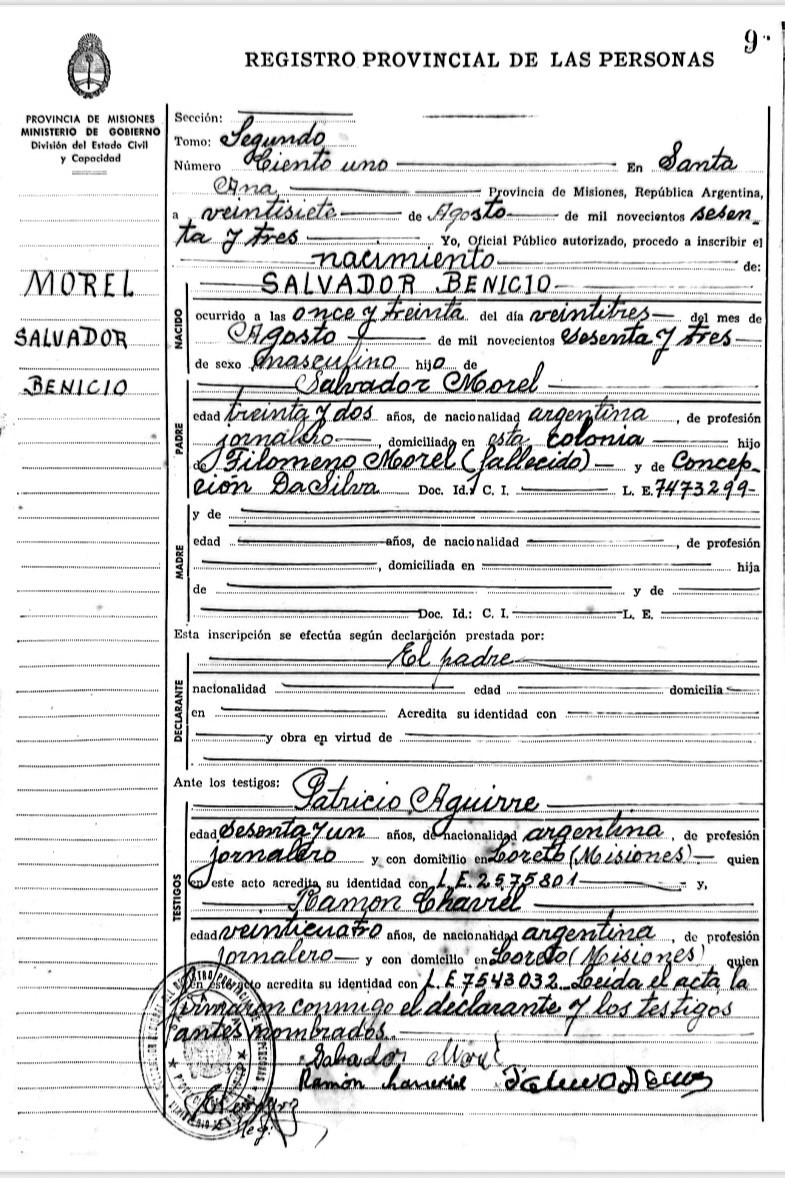 9
REGISTRO PROVINCIAL DE LAS PERSONAS
PROVINCIA DE MISIONES
MINISTERIO DE GOBIERNO
División del Estado Civil
y Capacidad
MOREL
SALVADOR
BENICIO
Sección:
Tomo: Segundo
Número Ciento uno En Santa
Ana Provincia de Misiones, República Argentina,
a veintisiete de Agosto de mil novecientos sesen-
ta y tres. Yo, Oficial Público autorizado, procedo a inscribir el
nacimiento de:
SALVADOR BENICIO
NACIDO
ocurrido a las once y treinta del día veintitres del mes de
Agosto de mil novecientos sesenta y tres
de sexo masculino hijo de
Salvador Morel
PADRE
edad treinta y dos años, de nacionalidad argentina, de profesión
jornalero, domiciliado en esta colonia hijo
de Filomeno Morel (fallecido) y de Concep-
ción DaSilva Doc. Id.: C. I. L. E. 7473299
MADRE
y de
edad años, de nacionalidad, de profesión
, domiciliada en hija
de y de
Doc. Id.: C. I. L. E.
Esta inscripción se efectúa según declaración prestada por:
El padre
DECLARANTE
nacionalidad edad domicilia
en Acredita su identidad con
y obra en virtud de
Ante los testigos: Patricio Aguirre
TESTIGOS
edad sesenta y un años, de nacionalidad argentina, de profesión
jornalero y con domicilio en Loreto (Misiones) quien
en este acto acredita su identidad con L.E. 2575801 y,
Ramon Charrel
edad veinticuatro años, de nacionalidad argentina, de profesión
jornalero y con domicilio en Loreto (Misiones) quien
en este acto acredita su identidad con L.E 7543032. Leida el acta, la
firmaron conmigo el declarante y los testigos
antes nombrados.
Salvador Morel
Ramón